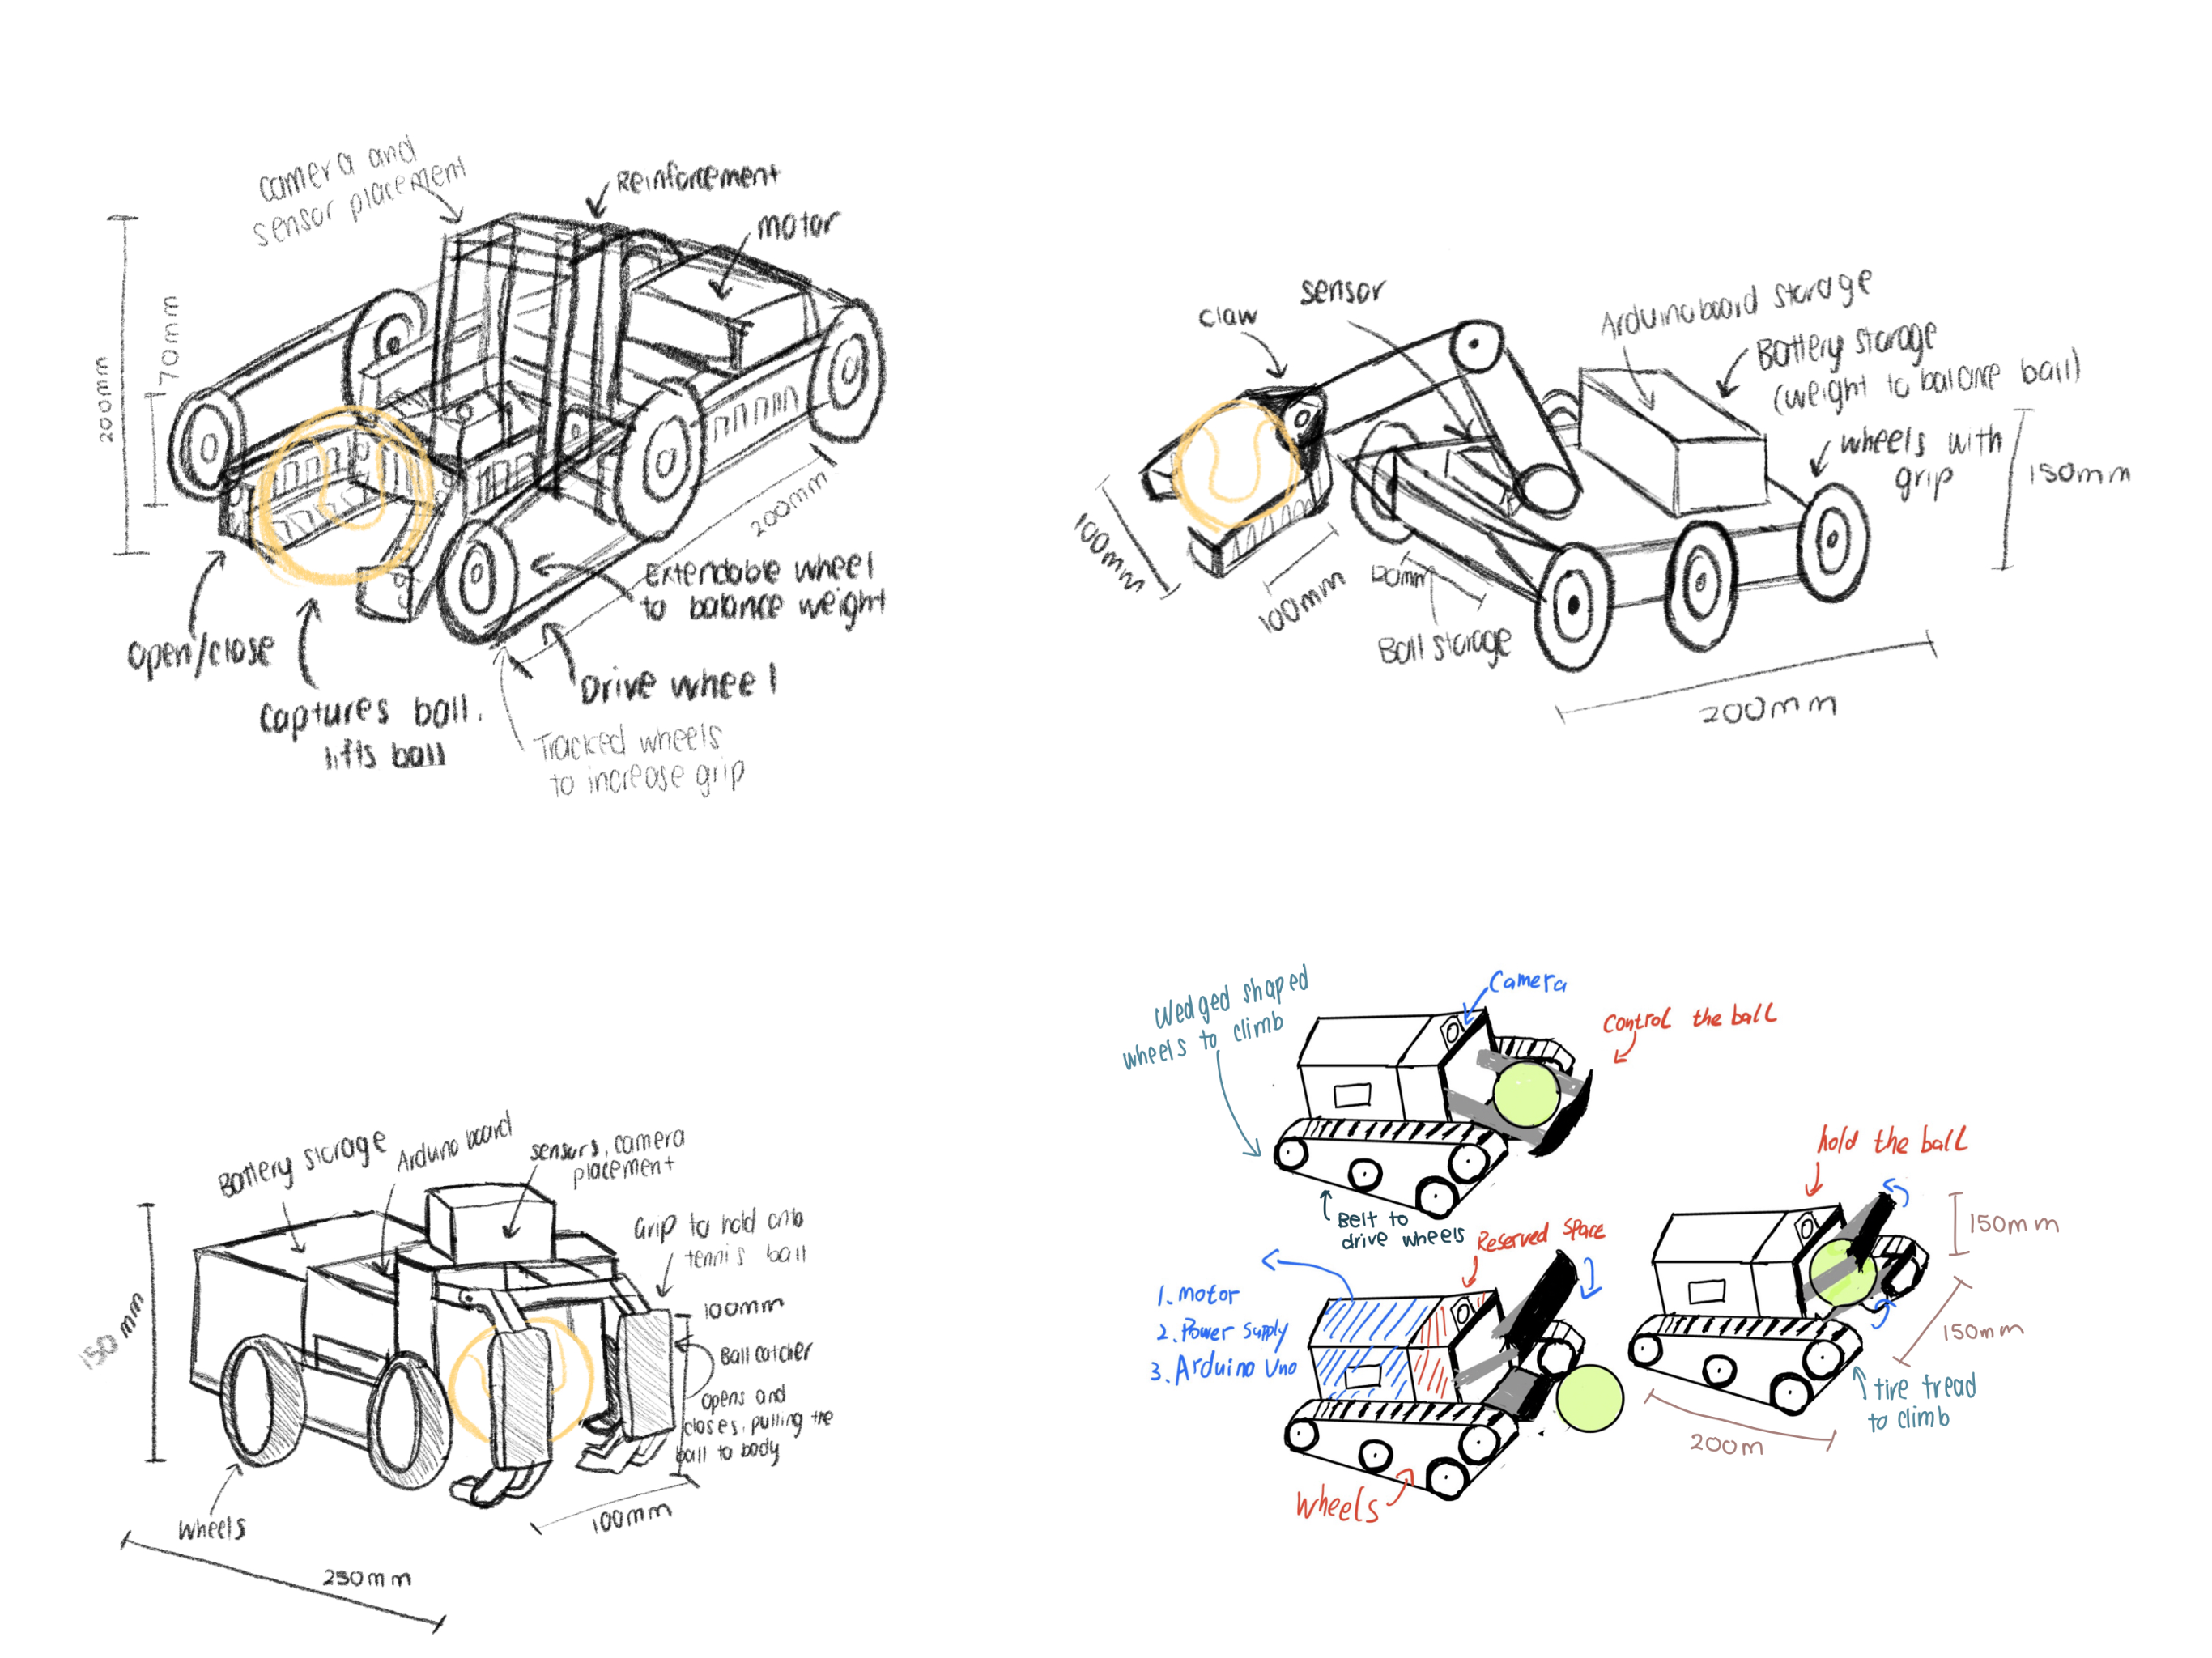 camera and
sensor placement
Reinforcement
motor
200mm
170mm
200mm
Open/close
Captures ball.
lifts ball
Extendable wheel
to balance weight
Drive wheel
Tracked wheels
to increase grip
claw
sensor
Arduino board storage
Battery storage
(weight to balance ball)
wheels with
grip
150mm
100mm
100mm
120mm
Ball storage
200mm
Battery storage
Arduino board
sensors, camera
placement
Grip to hold onto
tennis ball
100mm
Ball catcher
opens and
closes, pulling the
ball to body
150mm
wheels
250mm
100mm
Wedged shaped
wheels to climb
Camera
Control the ball
Belt to
drive wheels
Reserved Space
1. motor
2. Power supply
3. Arduino Uno
wheels
hold the ball
150mm
150mm
tire tread
to climb
200m